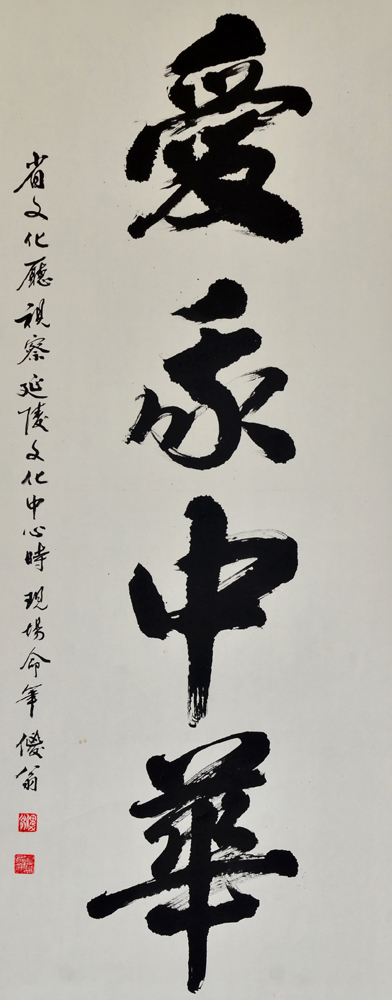 愛我中華
省文化廳視察延陵文化中心時現場命筆 儍翁